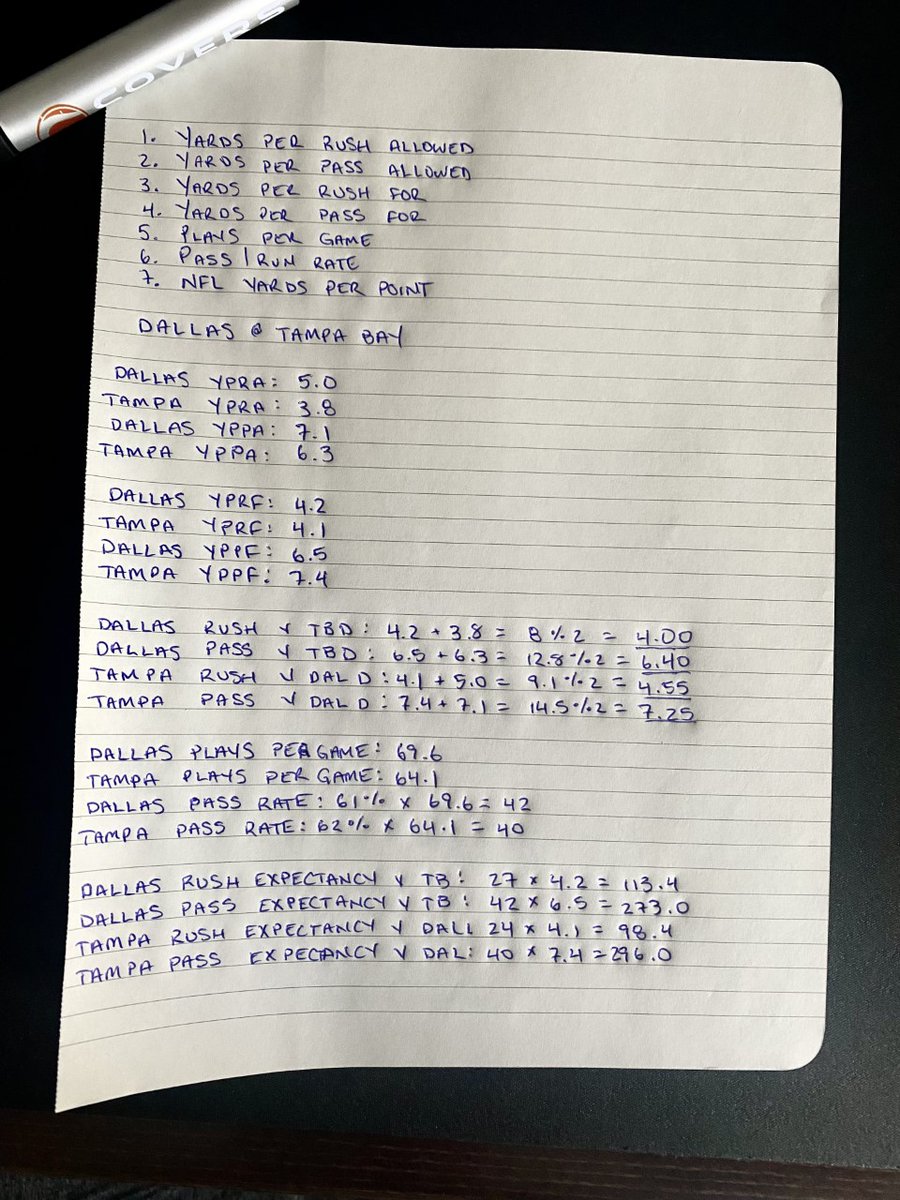 COVERS
1. YARDS PER RUSH ALLOWED
2. YARDS PER PASS ALLOWED
3. YARDS PER RUSH FOR
4. YARDS PER PASS FOR
5. PLAYS PER GAME
6. PASS / RUN RATE
7. NFL YARDS PER POINT
DALLAS @ TAMPA BAY
DALLAS YPRA: 5.0
TAMPA YPRA: 3.8
DALLAS YPPA: 7.1
TAMPA YPPA: 6.3
DALLAS YPRF: 4.2
TAMPA YPRF: 4.1
DALLAS YPPF: 6.5
TAMPA YPPF: 7.4
DALLAS RUSH V TBD: 4.2 + 3.8 = 8 % 2 = 4.00
DALLAS PASS V TBD: 6.5 + 6.3 = 12.8 % 2 = 6.40
TAMPA RUSH V DAL D: 4.1 + 5.0 = 9.1 % 2 = 4.55
TAMPA PASS V DAL D: 7.4 + 7.1 = 14.5 % 2 = 7.25
DALLAS PLAYS PER GAME: 69.6
TAMPA PLAYS PER GAME: 64.1
DALLAS PASS RATE: 61% x 69.6 = 42
TAMPA PASS RATE: 62% x 64.1 = 40
DALLAS RUSH EXPECTANCY V TB: 27 x 4.2 = 113.4
DALLAS PASS EXPECTANCY V TB: 42 x 6.5 = 273.0
TAMPA RUSH EXPECTANCY V DAL: 24 x 4.1 = 98.4
TAMPA PASS EXPECTANCY V DAL: 40 x 7.4 = 296.0